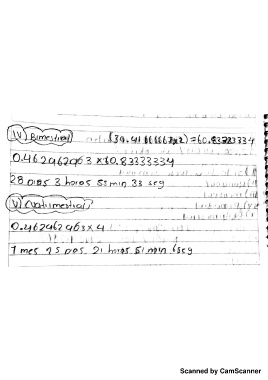 IV) Bimestral (30.41666667x2)=60.83333334
0.462962963 x 60.83333334
28 Dias 3 horas 55 min 33 seg
V) Cuatrimestral
0.462962963 x 4
1 mes 25 Dias. 21 horas 51 min 6 seg
Scanned by CamScanner